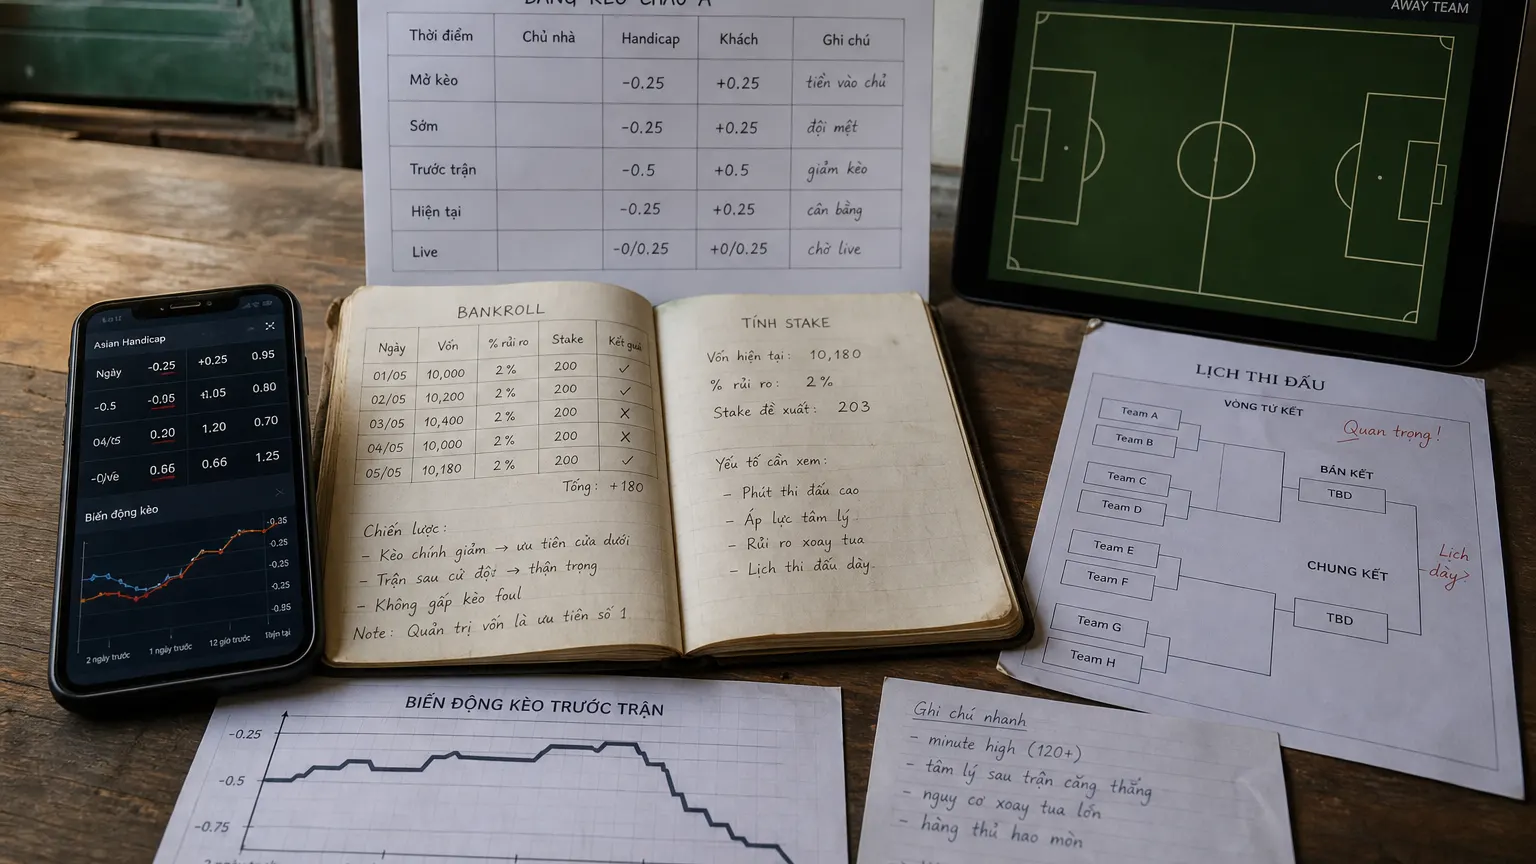 Thời điểm Chủ nhà Handicap Khách Ghi chú
Mở kèo -0.25 +0.25 tiền vào chủ
Sớm -0.25 +0.25 đội mệt
Trước trận -0.5 +0.5 giảm kèo
Hiện tại -0.25 +0.25 cân bằng
Live -0/0.25 +0/0.25 chờ live
AWAY TEAM
Asian Handicap
Ngày -0.25 +0.25 0.95
-0.5 -0.95 +1.05 0.80
0.20 1.20 0.70
0.66 0.66 1.25
Biến động kèo
-0.25
-0.25
-0.95
2 ngày trước 1 ngày trước 12 giờ trước
BANKROLL
Ngày Vốn % rủi ro Stake Kết quả
01/05 10,000 2% 200 ✓
02/05 10,200 2% 200 ✓
03/05 10,400 2% 200 ✗
04/05 10,000 2% 200 ✗
05/05 10,180 2% 200 ✓
Tổng: +180
Chiến lược:
- Kèo chính giảm → ưu tiên cửa dưới
- Trận sau cử → thận trọng
- Không gấp kèo foul
Note: Quản trị vốn là ưu tiên số 1
TÍNH STAKE
Vốn hiện tại: 10,180
% rủi ro: 2%
Stake đề xuất: 203
Yếu tố cần xem:
- Phút thi đấu cao
- Áp lực tâm lý
- Rủi ro xoay tua
- Lịch thi đấu dày
LỊCH THI ĐẤU
VÒNG TỨ KẾT
Quan trọng!
Team A
Team B
Team C
Team D
Team E
Team F
Team G
Team H
BÁN KẾT
TBD
CHUNG KẾT
TBD
Lịch
dày?
BIẾN ĐỘNG KÈO TRƯỚC TRẬN
-0.25
-0.5
-0.75
Ghi chú nhanh
- minute high (120+)
- tâm lý sau trận căng thẳng
- nguy cơ xoay tua lớn
- hàng thủ hao mòn